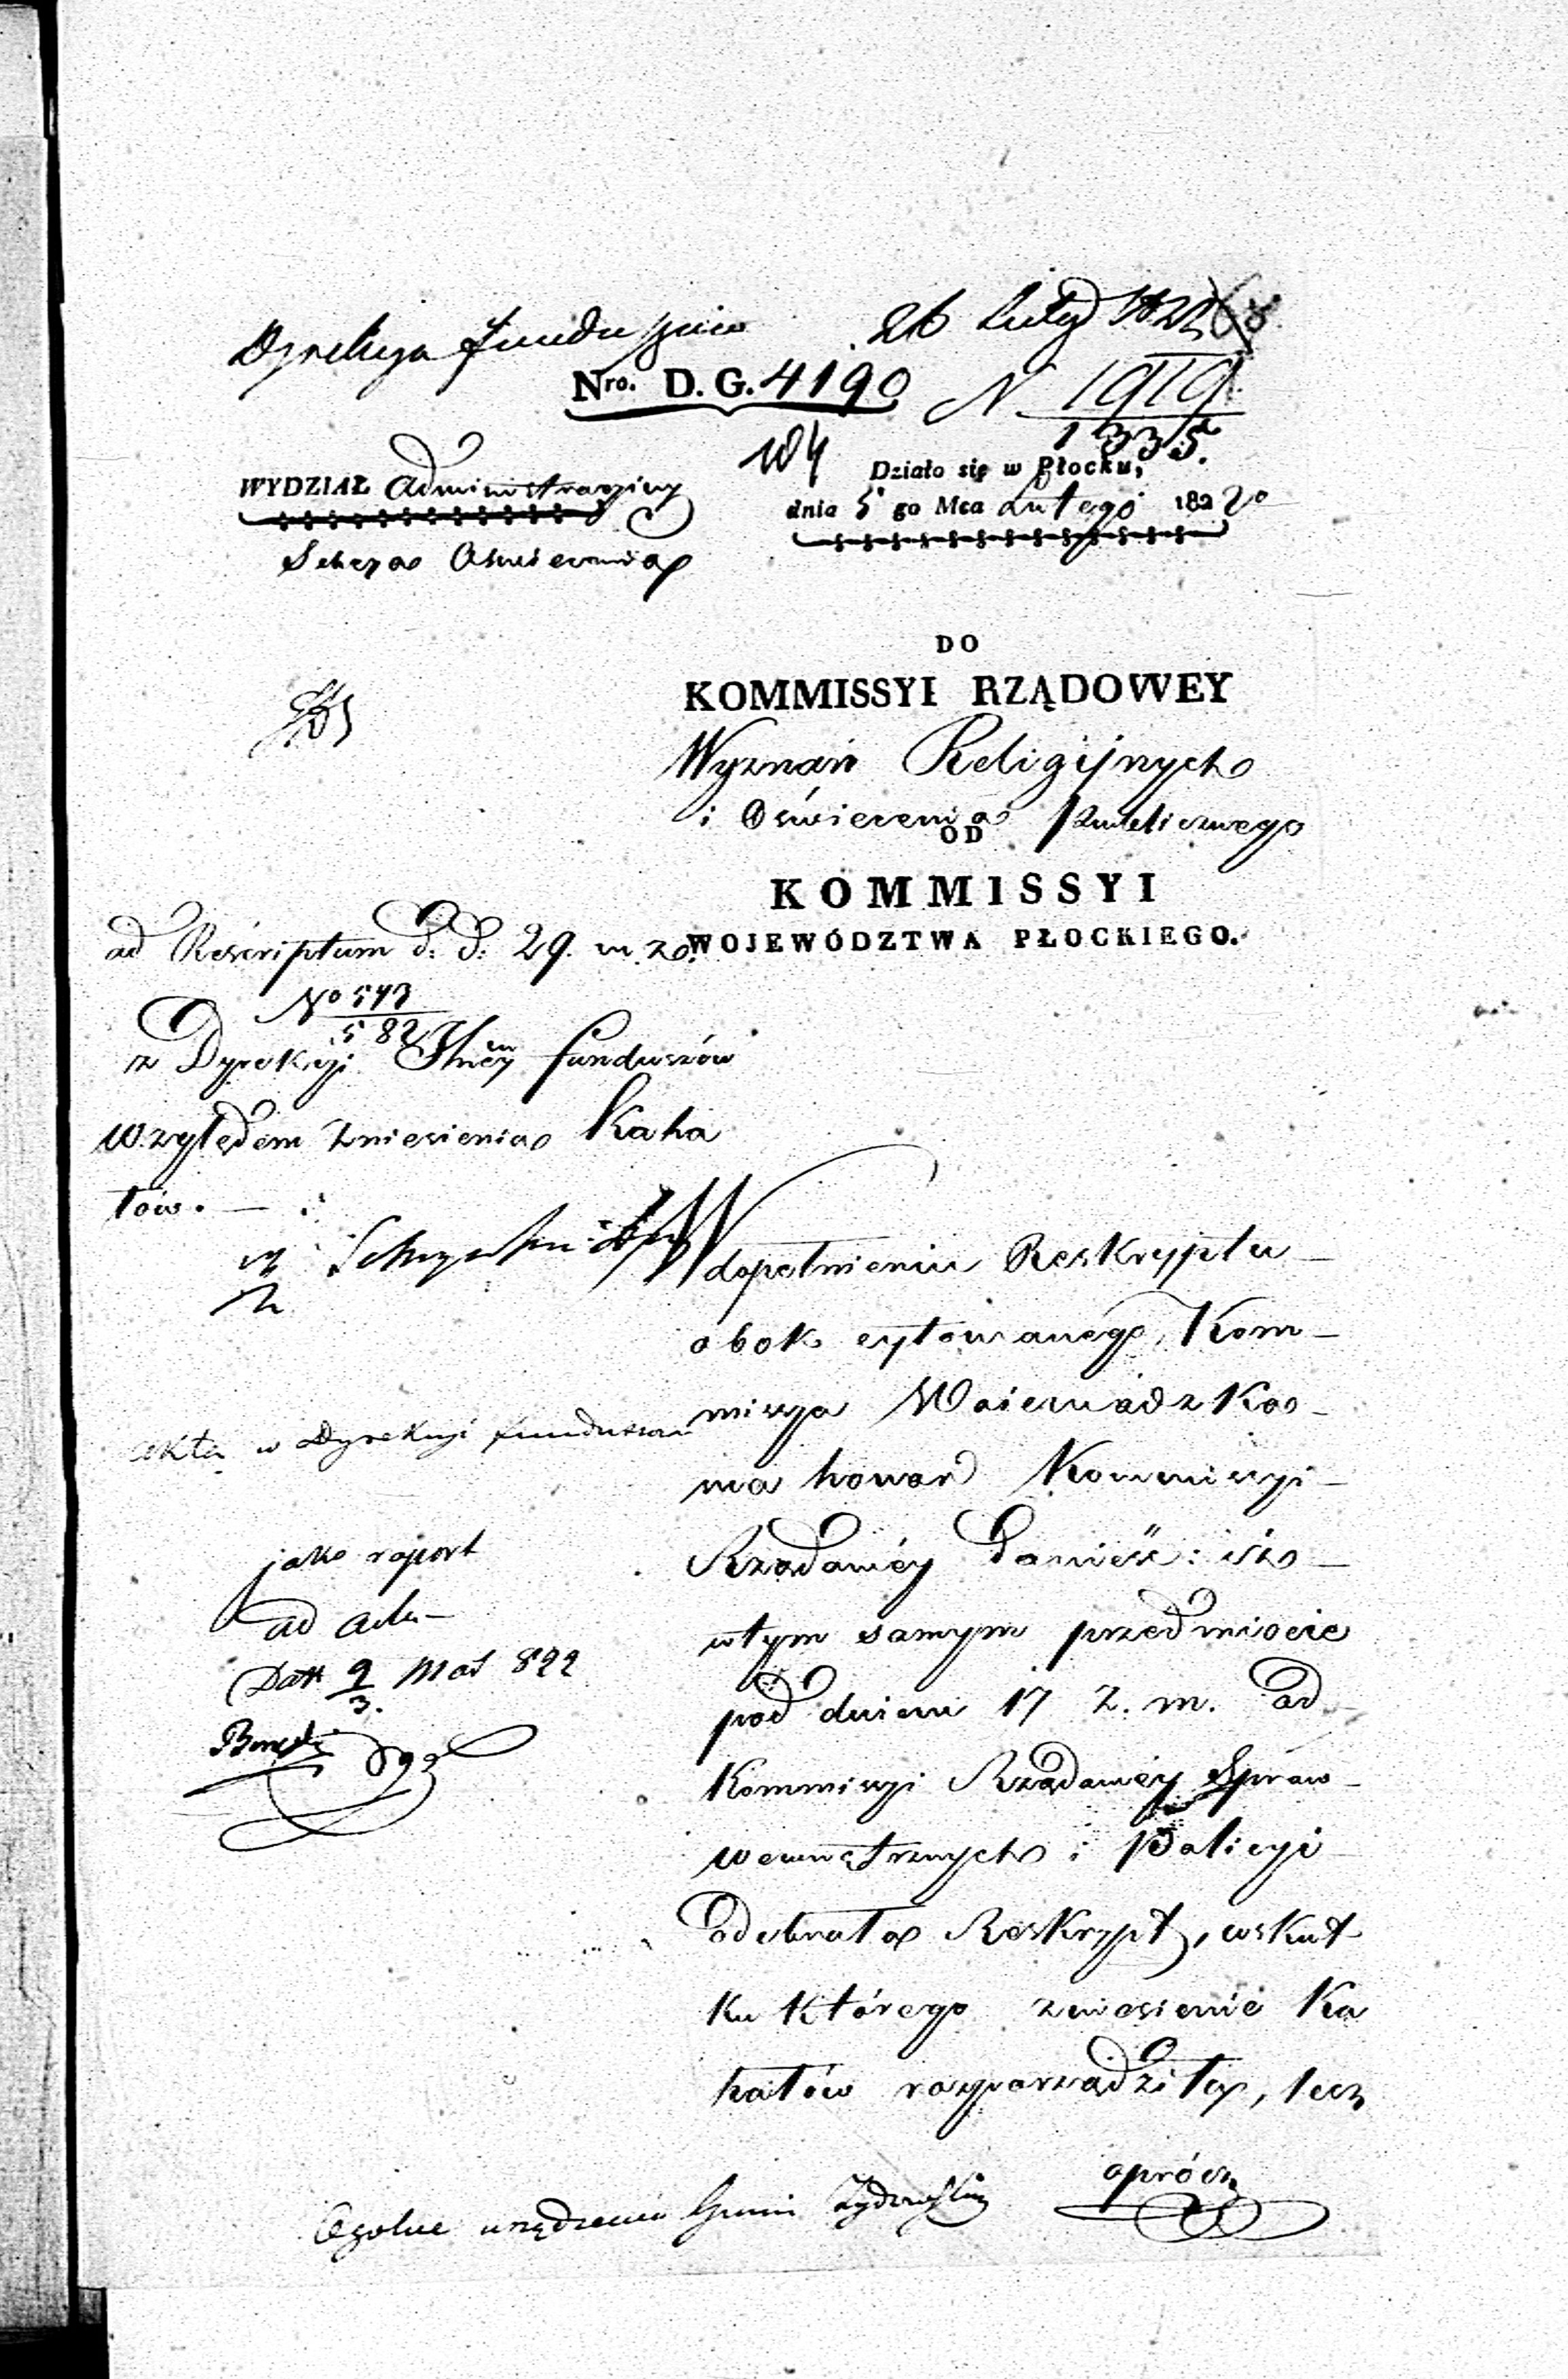 Dyrekcya Funduszów
26 Luty 1822
Nro. D. G. 4190
N 1919
1335.
104
WYDZIAŁ Administracyiny
Sekcya Oświecenia
Działo się w Płocku,
dnia 5 go Mca Lutego 1822 ro
DO
KOMMISSYI RZĄDOWEY
Wyznań Religijnych
i Oświecenia Publicznego
OD
KOMMISSYI
WOJEWÓDZTWA PŁOCKIEGO.
ad Rescriptum d. d. 29. m. z.
No 543
582
z Dyrekcyi Funduszów
względem zniesienia Kaha
łów. —
W dopełnieniu Reskryptu
obok cytowanego, Kom-
missya Woiewódzka
ma honor Kommissyi
Rządowéy donieść: iż
w tym samym przedmiocie
pod dniem 17 z. m. od
Kommissyi Rządowéy Spraw
wewnętrznych i Policyi
odebrała Reskrypt, w skut
ku którego zniesienie Ka
hałów rozporządziła, lecz
oprócz
akta w Dyrekcyi Funduszów
jako raport
ad acta
Datt 9/3. Mas 822
Ogólne urządzenie Gmin Żydowskich